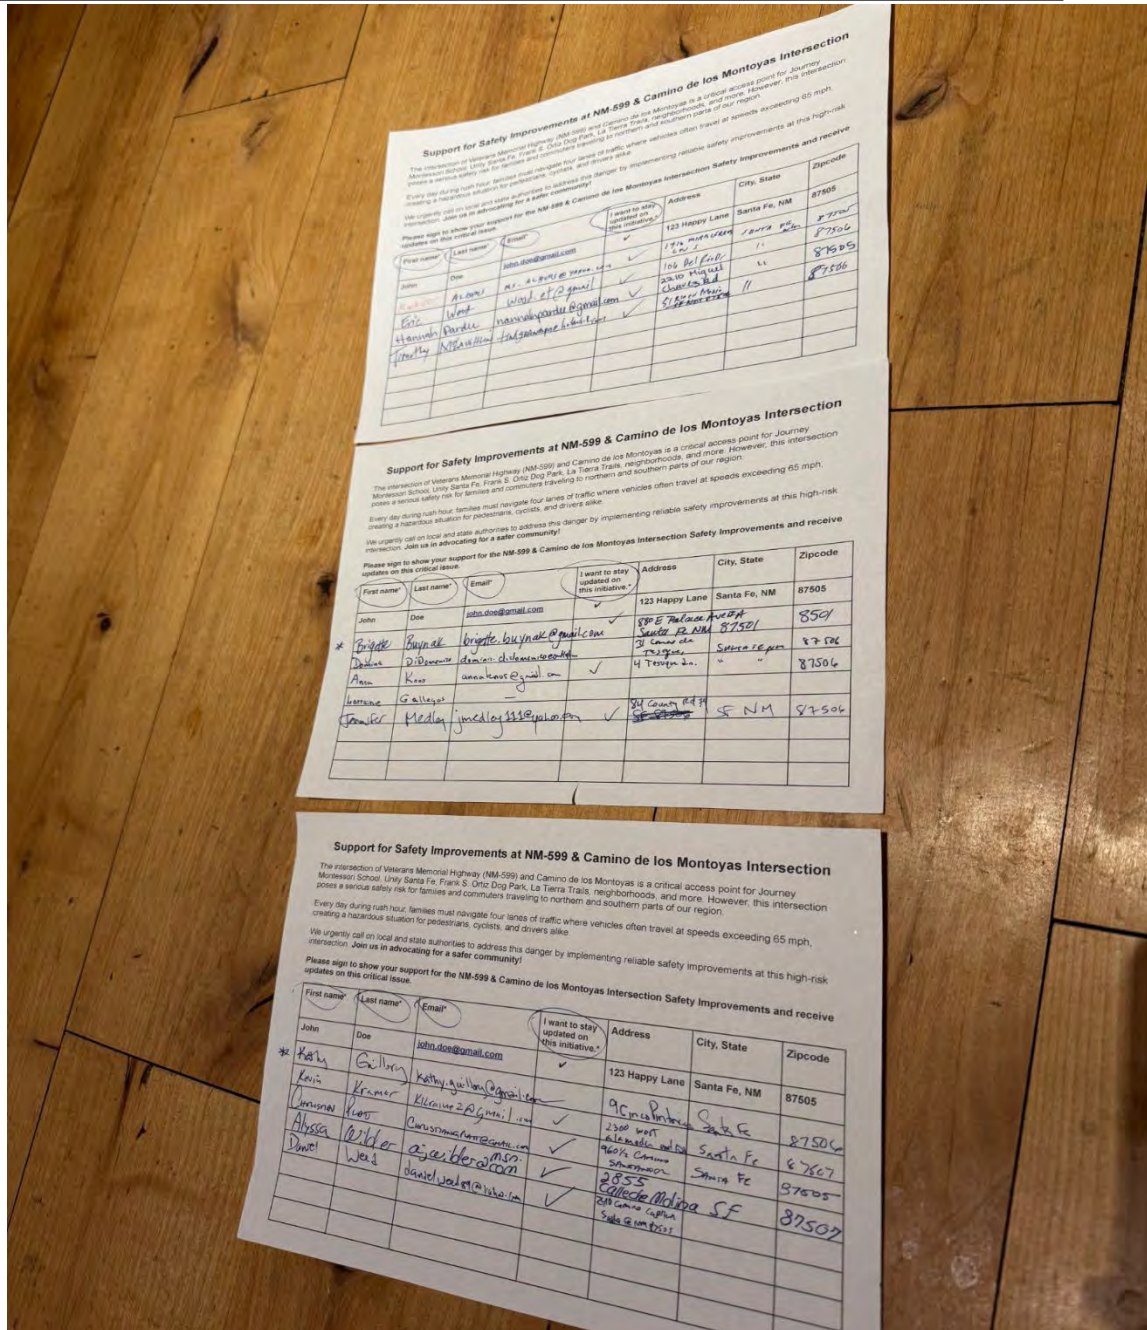 Support for Safety Improvements at NM-599 & Camino de los Montoyas Intersection
The intersection of Veterans Memorial Highway (NM-599) and Camino de los Montoyas is a critical access point for Journey
Montessori School, Unity Santa Fe, Frank S. Ortiz Dog Park, La Tierra Trails, neighborhoods, and more. However, this intersection
poses a serious safety risk for families and commuters traveling to northern and southern parts of our region.
Every day during rush hour, families must navigate four lanes of traffic where vehicles often travel at speeds exceeding 65 mph,
creating a hazardous situation for pedestrians, cyclists, and drivers alike.
We urgently call on local and state authorities to address this danger by implementing reliable safety improvements at this high-risk
intersection. Join us in advocating for a safer community!
Please sign to show your support for the NM-599 & Camino de los Montoyas Intersection Safety Improvements and receive
updates on this critical issue.
First name* Last name* Email* I want to stay updated on this initiative.* Address City, State Zipcode
John Doe john.doe@gmail.com ✓ 123 Happy Lane Santa Fe, NM 87505
✓ Santa Fe NM 87505
Eric Word ✓ 106 Del Rio Dr " 87506
Hannah Pardee hannahpardee@gmail.com ✓ 2210 Miguel Chavez Rd " 87505
Timothy ✓ " 87506
Support for Safety Improvements at NM-599 & Camino de los Montoyas Intersection
The intersection of Veterans Memorial Highway (NM-599) and Camino de los Montoyas is a critical access point for Journey
Montessori School, Unity Santa Fe, Frank S. Ortiz Dog Park, La Tierra Trails, neighborhoods, and more. However, this intersection
poses a serious safety risk for families and commuters traveling to northern and southern parts of our region.
Every day during rush hour, families must navigate four lanes of traffic where vehicles often travel at speeds exceeding 65 mph,
creating a hazardous situation for pedestrians, cyclists, and drivers alike.
We urgently call on local and state authorities to address this danger by implementing reliable safety improvements at this high-risk
intersection. Join us in advocating for a safer community!
Please sign to show your support for the NM-599 & Camino de los Montoyas Intersection Safety Improvements and receive
updates on this critical issue.
First name* Last name* Email* I want to stay updated on this initiative.* Address City, State Zipcode
John Doe john.doe@gmail.com ✓ 123 Happy Lane Santa Fe, NM 87505
* Brigitte Buynak brigitte.buynak@gmail.com ✓ 880 E Palace Ave Santa Fe NM 87501 8501
DiDomenico 87506
Anna Knos annaknos@gmail.com ✓ 4 Tesuque Ln. " " 87506
Lorraine Gallegos
Jennifer Medley jmedley111@yahoo.com ✓ 84 County Rd SF NM 87506
Support for Safety Improvements at NM-599 & Camino de los Montoyas Intersection
The intersection of Veterans Memorial Highway (NM-599) and Camino de los Montoyas is a critical access point for Journey
Montessori School, Unity Santa Fe, Frank S. Ortiz Dog Park, La Tierra Trails, neighborhoods, and more. However, this intersection
poses a serious safety risk for families and commuters traveling to northern and southern parts of our region.
Every day during rush hour, families must navigate four lanes of traffic where vehicles often travel at speeds exceeding 65 mph,
creating a hazardous situation for pedestrians, cyclists, and drivers alike.
We urgently call on local and state authorities to address this danger by implementing reliable safety improvements at this high-risk
intersection. Join us in advocating for a safer community!
Please sign to show your support for the NM-599 & Camino de los Montoyas Intersection Safety Improvements and receive
updates on this critical issue.
First name* Last name* Email* I want to stay updated on this initiative.* Address City, State Zipcode
John Doe john.doe@gmail.com ✓ 123 Happy Lane Santa Fe, NM 87505
* Kathy Santa Fe 87506
Kevin Kramer ✓ 2300 West Alameda Santa Fe 87507
✓ 960½ Camino Santander Santa Fe 87505
Alyssa Wibler ajawibler@msn.com ✓ 2855 Calle de Molina SF 87507
Daniel Weed danielweed89@yahoo.com ✓